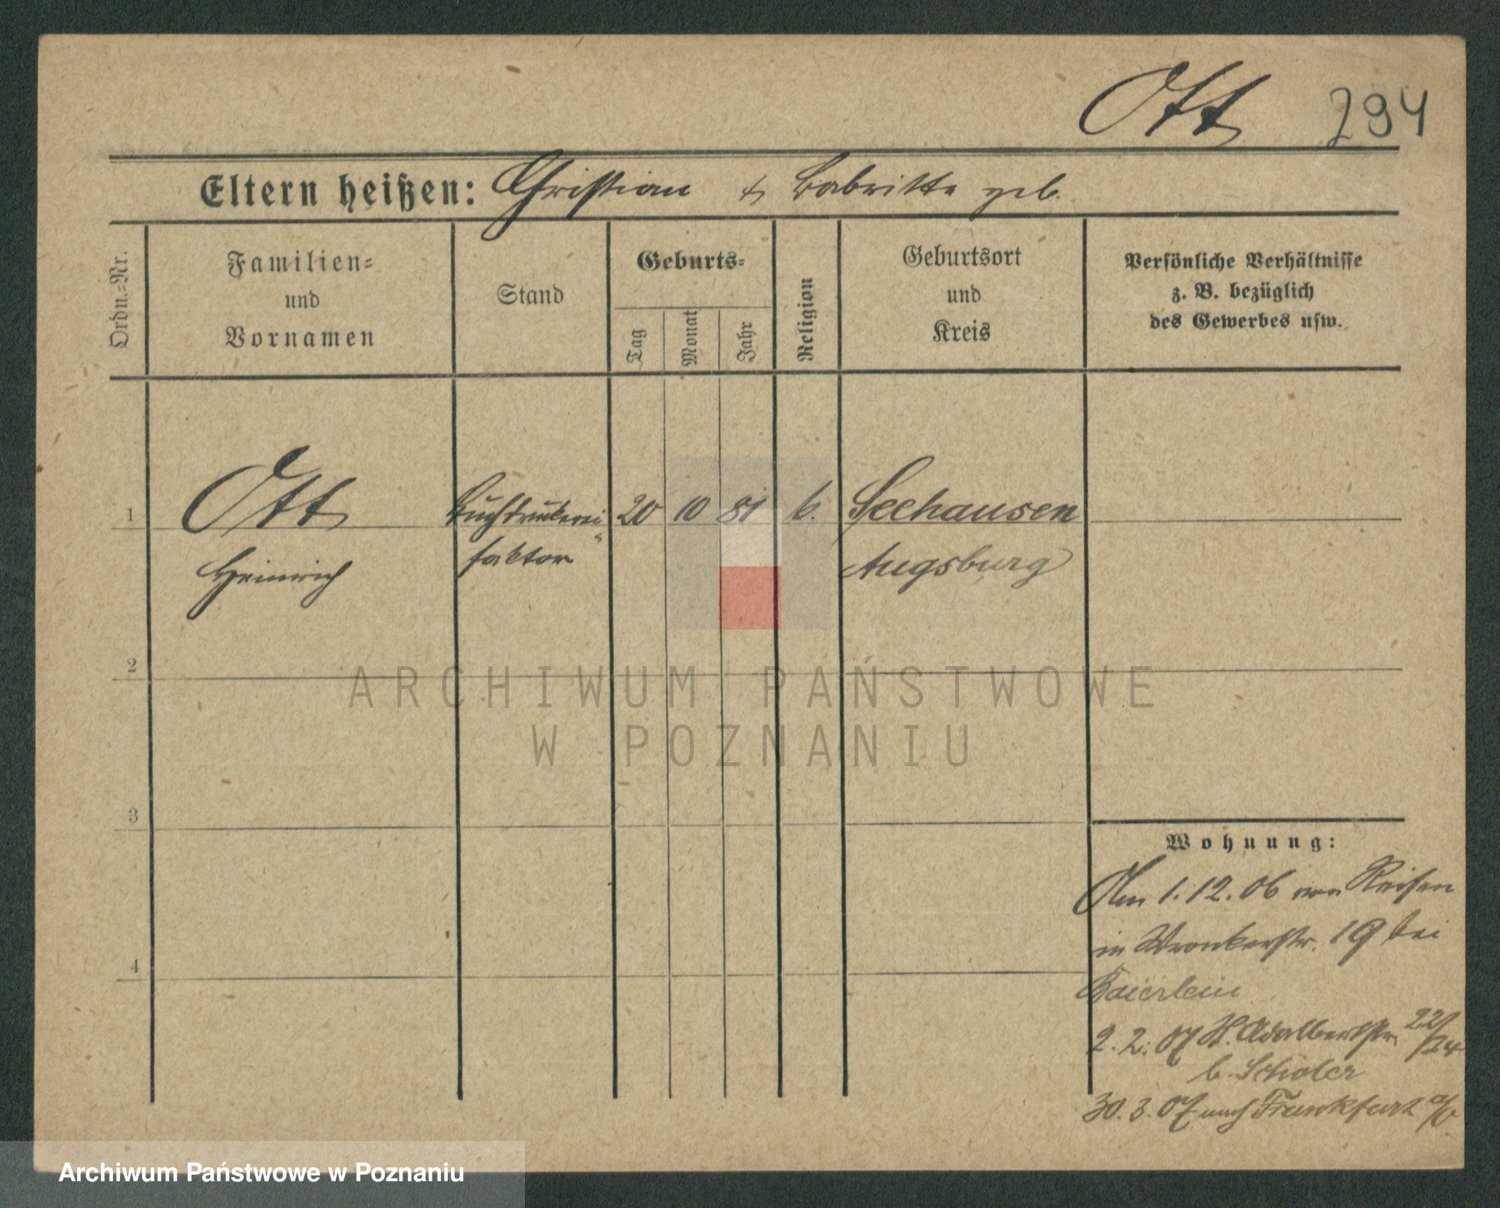 Ott 294
Eltern heißen: Christian & Babritte geb.
Ordn.-Nr.
Familien-
und
Vornamen
Stand
Geburts-
Tag
Monat
Jahr
Religion
Geburtsort
und
Kreis
Persönliche Verhältnisse
z. B. bezüglich
des Gewerbes usw.
1 Ott Buchdruckerei 20 10 81 Seehausen
Heinrich faktor Augsburg
2
3
4
Wohnung:
Am 1.12.06 von Reisen
in Wronkerstr. 19 bei
Baierlein
2.2.07 St. Adalbertstr. 22/24
b. Schöler
30.3.07 nach Frankfurt a/O
ARCHIWUM PAŃSTWOWE
W POZNANIU
Archiwum Państwowe w Poznaniu